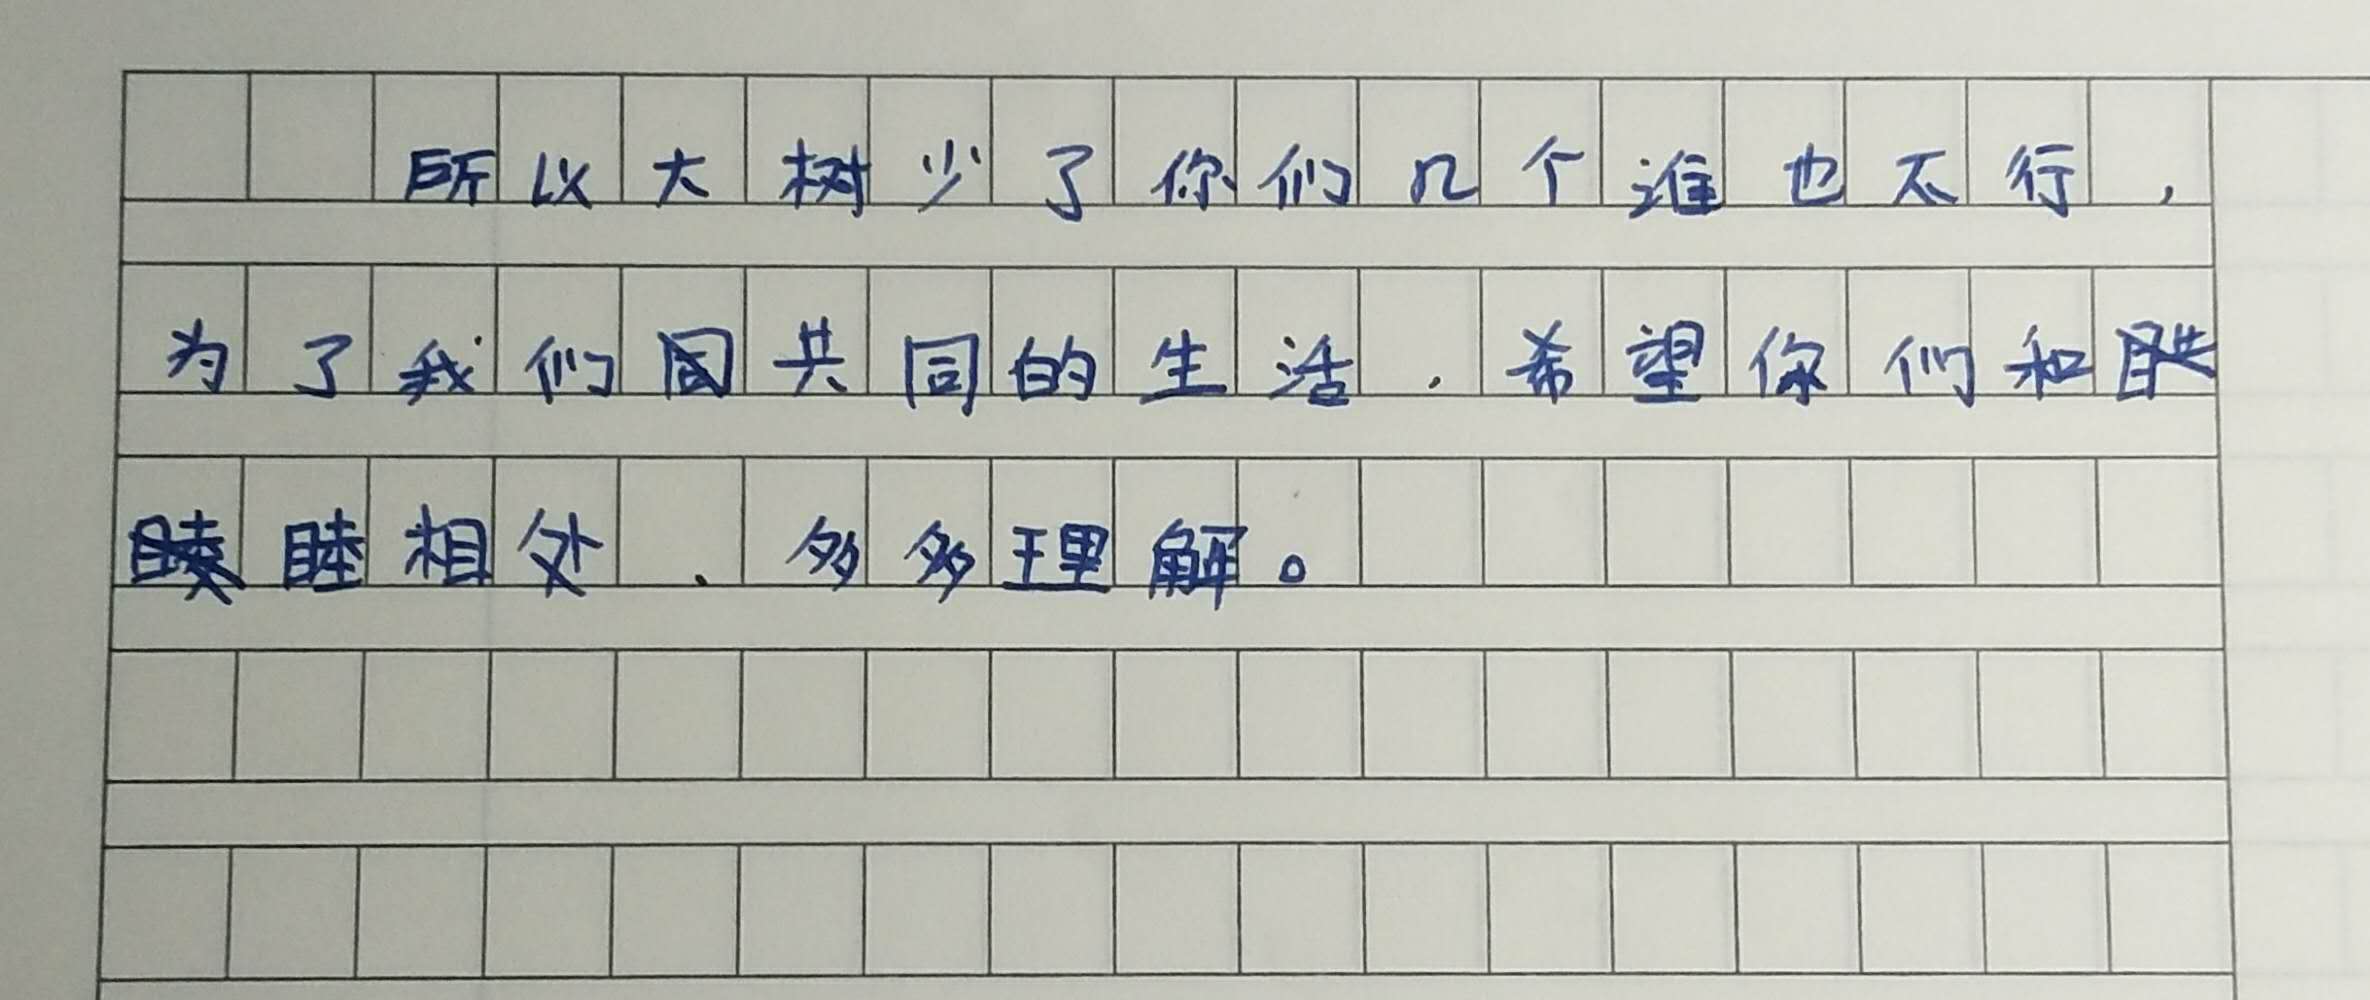 所以大树少了你们几个谁也不行，
为了我们共同的生活，希望你们和
睦相处，多多理解。